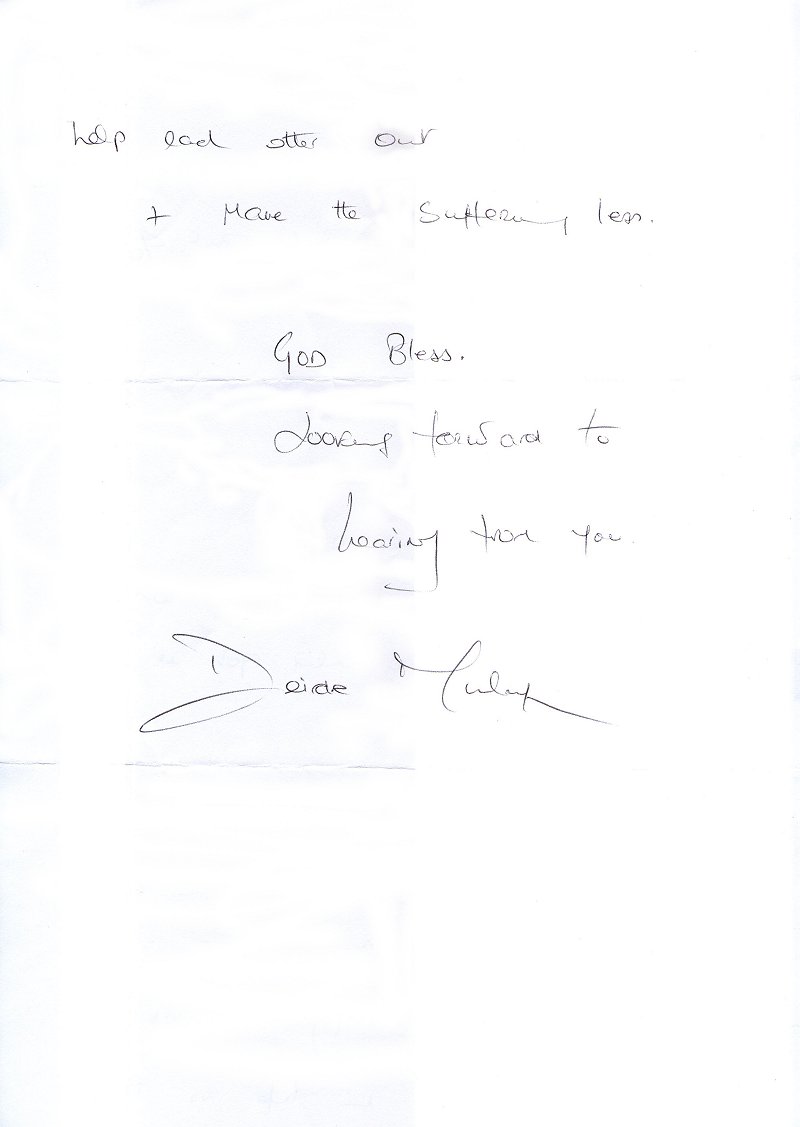 help each other out
+ Make the Suffering less.
GOD Bless.
Looking forward to
hearing from you.
Deirdre